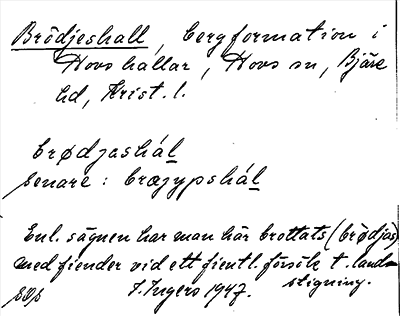 Brödjeshall, bergformation i
Hovs hallar, Hovs sn, Bjäre
hd, Krist. l.
brødjashál
senare: brøjypshál
Enl. sägnen har man här brottats (brødjas)
med fiender vid ett fientl. försök t. land-
stigning.
I. Ingers 1947.